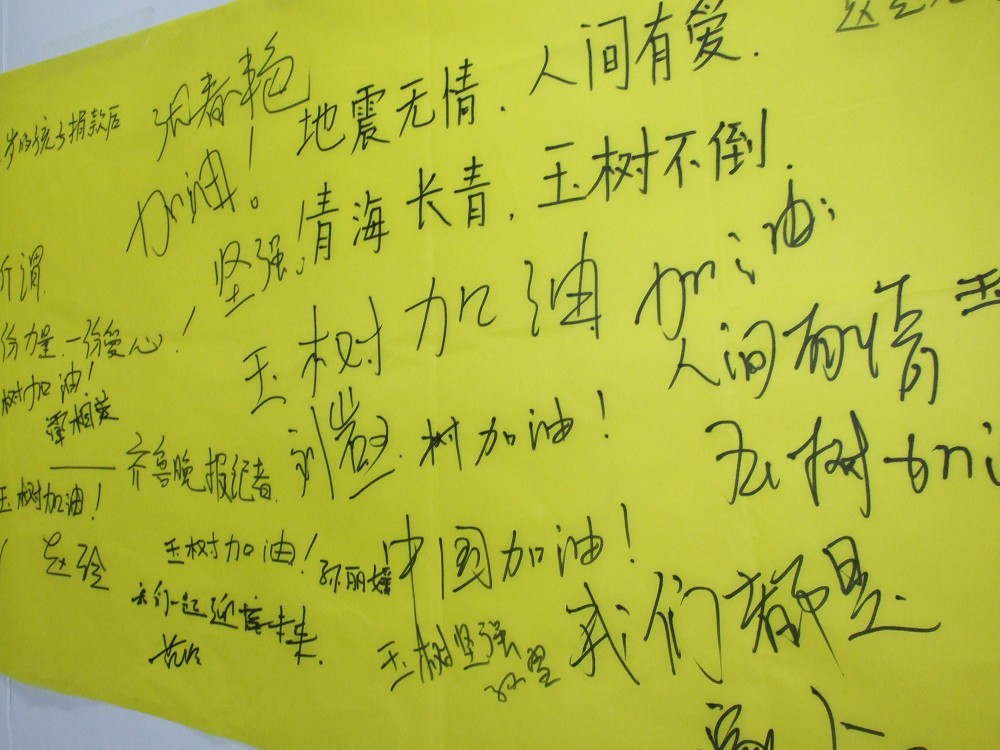 地震无情，人间有爱.
情海长青，玉树不倒.
张春艳
加油！
坚强！
岁的孩子捐款后
所谓
份力量，一份爱心！
树加油！
玉树加油 加油！
人间有情
玉树加油
玉树加油！
齐鲁晚报记者
树加油！
中国加油！
玉树加油！
孙丽媛
我们一起迎接未来.
玉树坚强
我们都是